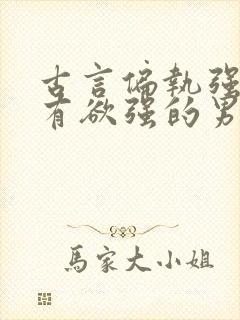 古言偏執強
有欲强的男
馬家大小姐